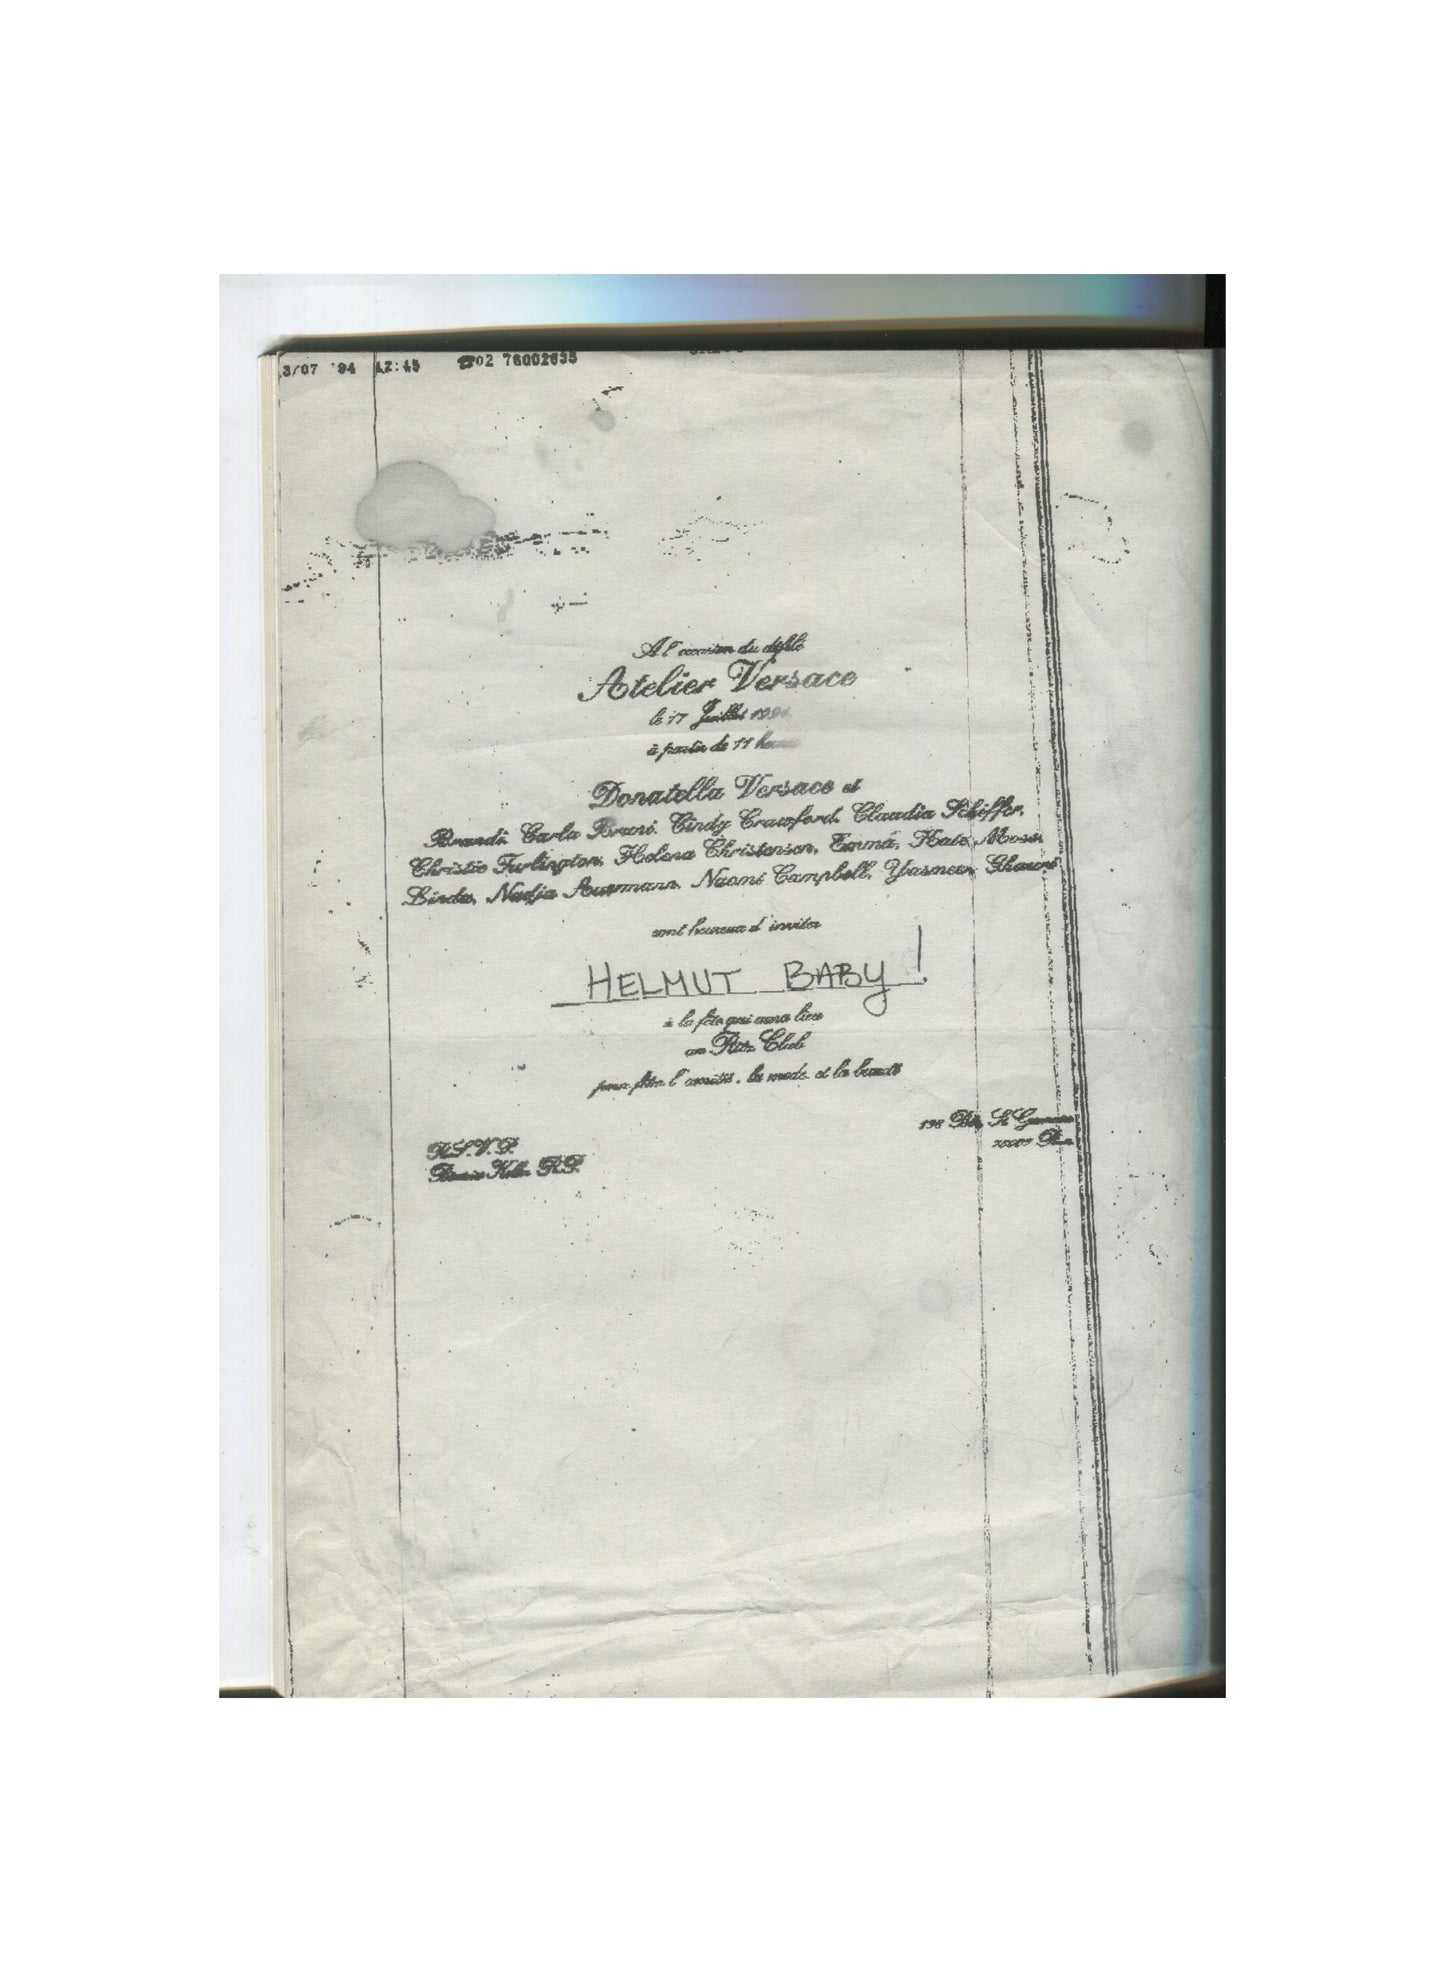 3/07 '94 12:45 02 76002635
A l'occasion du défilé
Atelier Versace
le 17 Juillet
à partir de 11
Donatella Versace et
Brandi, Carla Bruni, Cindy Crawford, Claudia Schiffer,
Christie Turlington, Helena Christensen, Emma, Kate Moss,
Linda, Nadja Auermann, Naomi Campbell, Yasmeen Ghauri
sont heureux d'inviter
HELMUT BABY!
à la fête qui aura lieu
au Club
pour fêter l'amitié, la mode et la beauté
198 Bd. St Germain
R.S.V.P.
R.P.